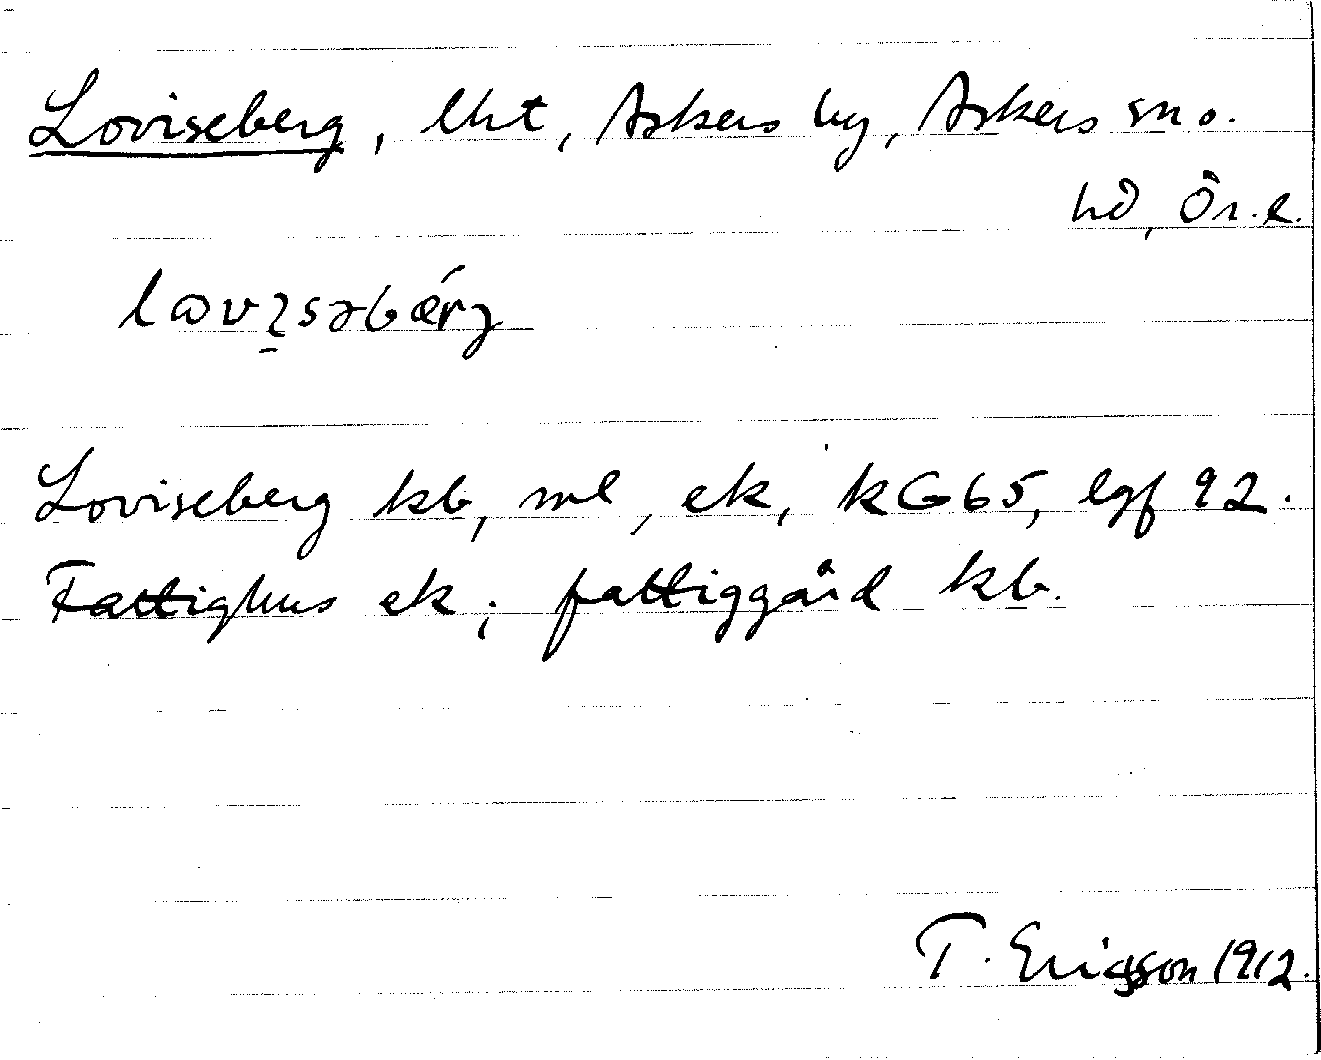 Loviseberg, lht, Askers by, Askers sn o.
hd, Ör. l.
Loviseberg kb, ml, ek, kG65, lgf 92.
Fattighus ek; fattiggård kb.
T. Ericsson 1912.